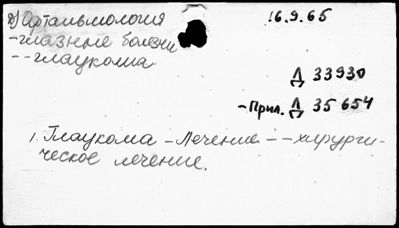 2) Офтальмология
16.9.65
-глазные болезни
--глаукома
Д 33930
-Прил. Д 35654
1. Глаукома - Лечение -- хирурги-
ческое лечение.